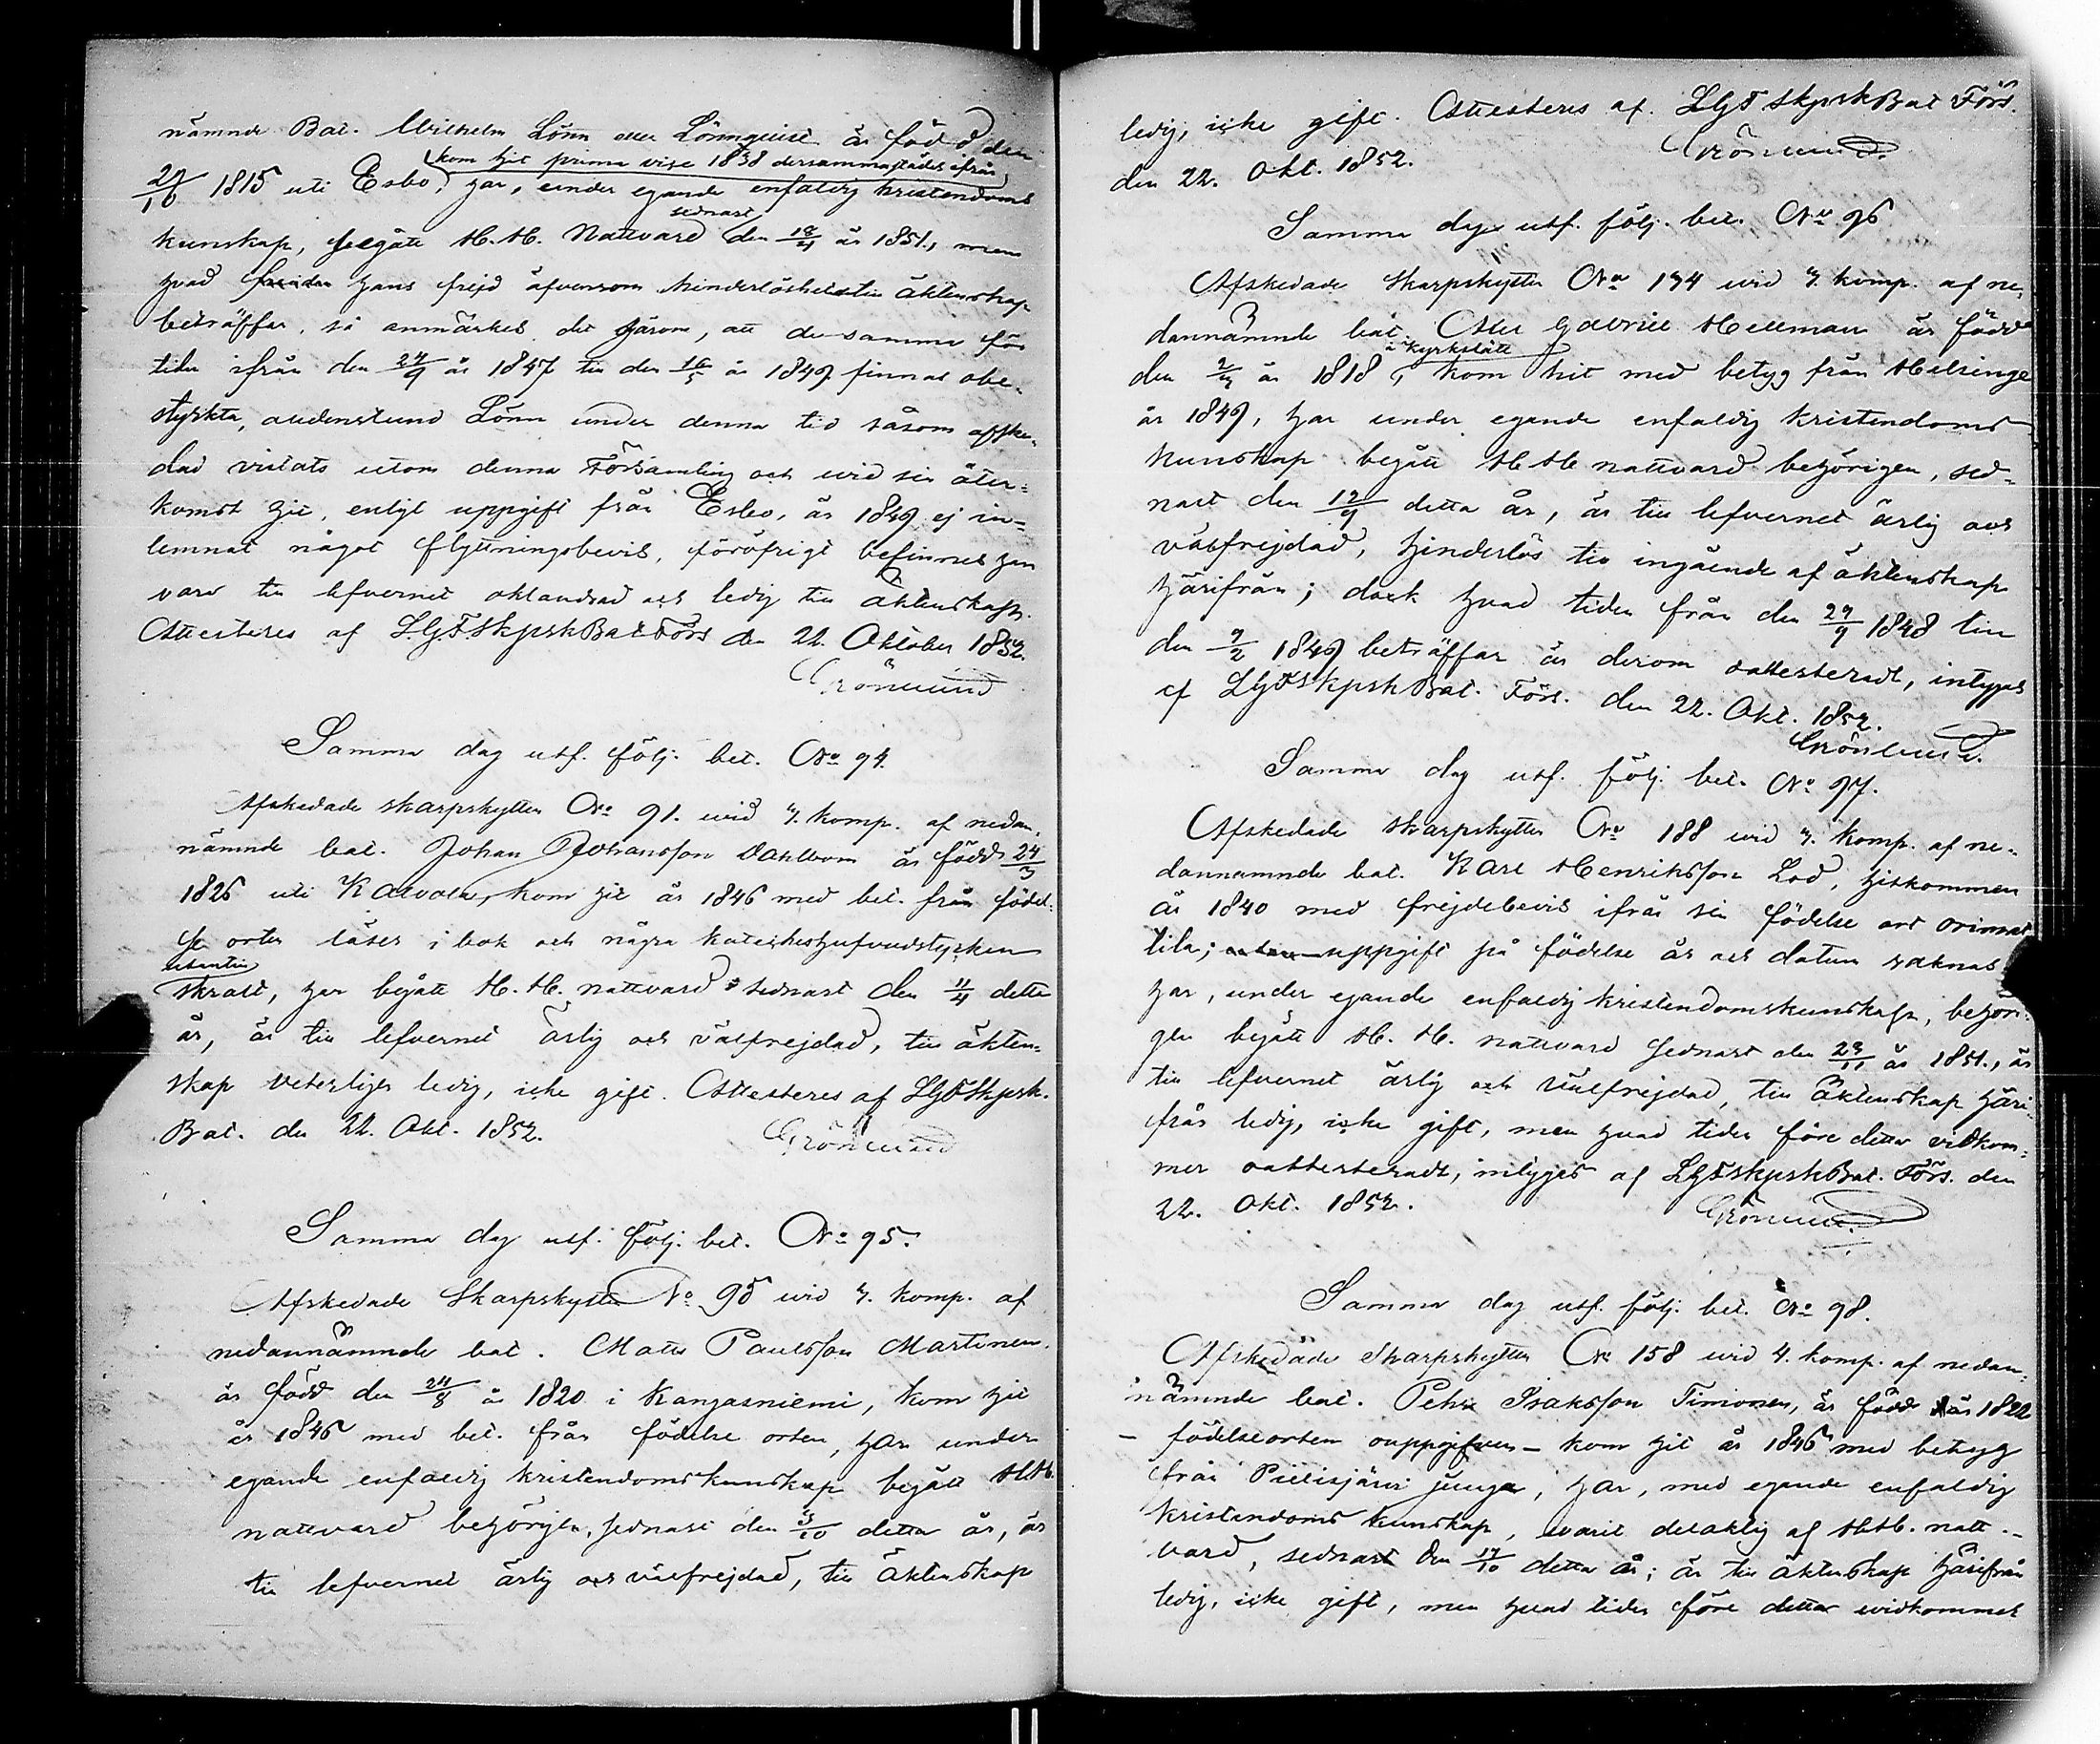 nämnde Bat. Wilhelm Lönn eller Lönnquist är född den
kom hit prima vise 1838 dersammastädes ifrån,
1815 uti Esbo, har, under egande enfaldig kristendoms
sednast
kunskap, begått H. H. Nattvard den 18/4 år 1851., men
hvad hans frejd äfvensom hinderlöshet till äktenskap
beträffar, så anmärkes det härom, att desamma för
tiden ifrån den 24/9 år 1847 till den 16/5 år 1849 finnas obe-
styrkta, alldenstund Lönn under denna tid såsom afske-
dad vistats utom denna Församling och wid sin åter-
komst hit, enligt uppgift från Esbo, år 1849 ej in-
lemnat något flyttningsbevis, föröfrigt befinnes han
vara till lefvernet oklandrad och ledig till Äktenskap.
Attesteres af LGFSkpskBatFörs den 22. Oktober 1852.
Grönlund
Samma dag utf. följ. bet. No 94.
Afskedade skarpskytten No 91. wid 4. komp. af nedan-
nämnde bat. Johan Johansson Dahlbom är född 24/3
1826 uti Kalvola, kom hit år 1846 med bet. från födel-
se orten läser i bok och några kateches hufvudstycken
utantill
skralt, har begått H. H. nattvard sednast den 11/4 detta
år, är till lefvernet ärlig och välfrejdad, till äkten-
skap veterligen ledig, icke gift. Attesteres af LGFSkpsk.
Bat. den 22. Okt. 1852. Grönlund
Samma dag utf. följ. bet. No 95.
Afskedade Skarpskytten No 95 wid 4. komp. af
nedannämnde bat. Matts Paulsson Martinen.
är född den 24/8 år 1820 i Kangasniemi, kom hit
år 1846 med bet. från födelse orten, har under
egande enfaldig kristendomskunskap begått HH.
nattvard behörigen, sednast den 3/10 detta år, är
till lefvernet ärlig och välfrejdad, till Äktenskap
ledig, icke gift. Attesteres af LGF SkpskBat Förs.
den 22. Okt. 1852. Grönlund.
Samma dag utf. följ. bet. No 96
Afskedade Skarpskytten No 134 wid 4. komp. af ne-
dannämnde bat. Otto Gabriel Hellman är född
i Kyrkslätt
den 2/3 år 1818, kom hit med betyg från Helsinge
år 1849, har under egande enfaldig kristendoms
kunskap begått H H nattvard behörigen, sed-
nast den 19/9 detta år, är till lefvernet ärlig och
välfrejdad, hinderlös till ingående af äktenskap
härifrån; dock hvad tiden från den 29/9 1848 till
den 9/2 1849 beträffar är derom oattesteradt, intygas
af LGFSkpskBat. Förs. den 22. Okt. 1852.
Grönlund.
Samma dag utf. följ. bet. No 97.
Afskedade Skarpskytten No 188 wid 4. komp. af ne-
dannämnde bat. Karl Henriksson Lod, hitkommen
år 1840 med frejdebevis ifrån sin födelse ort Orimat-
tila; uppgift på födelse år och datum saknas
har, under egande enfaldig kristendomskunskap, behöri-
gen begått H. H. nattvard sednast den 23/11 år 1851., är
till lefvernet ärlig och välfrejdad, till Äktenskap häri-
från ledig, icke gift, men hvad tiden före detta vidkom-
mer oattesteradt, intygas af LGFSkpskBat. Förs. den
22. Okt. 1852. Grönlund.
Samma dag utf. följ. bet. No 98.
Afskedade Skarpskytten No 158 wid 4. komp. af nedan-
nämnde bat. Pehr Isaksson Timonen, är född år 1822
- födelseorten ouppgifven - kom hit år 1846 med betyg
från Pielisjärvi, har, med egande enfaldig
kristendoms kunskap, warit delaktig af HH. natt-
vard, sednast den 17/10 detta år; är till äktenskap härifrån
ledig, icke gift, men hvad tiden före detta widkommer